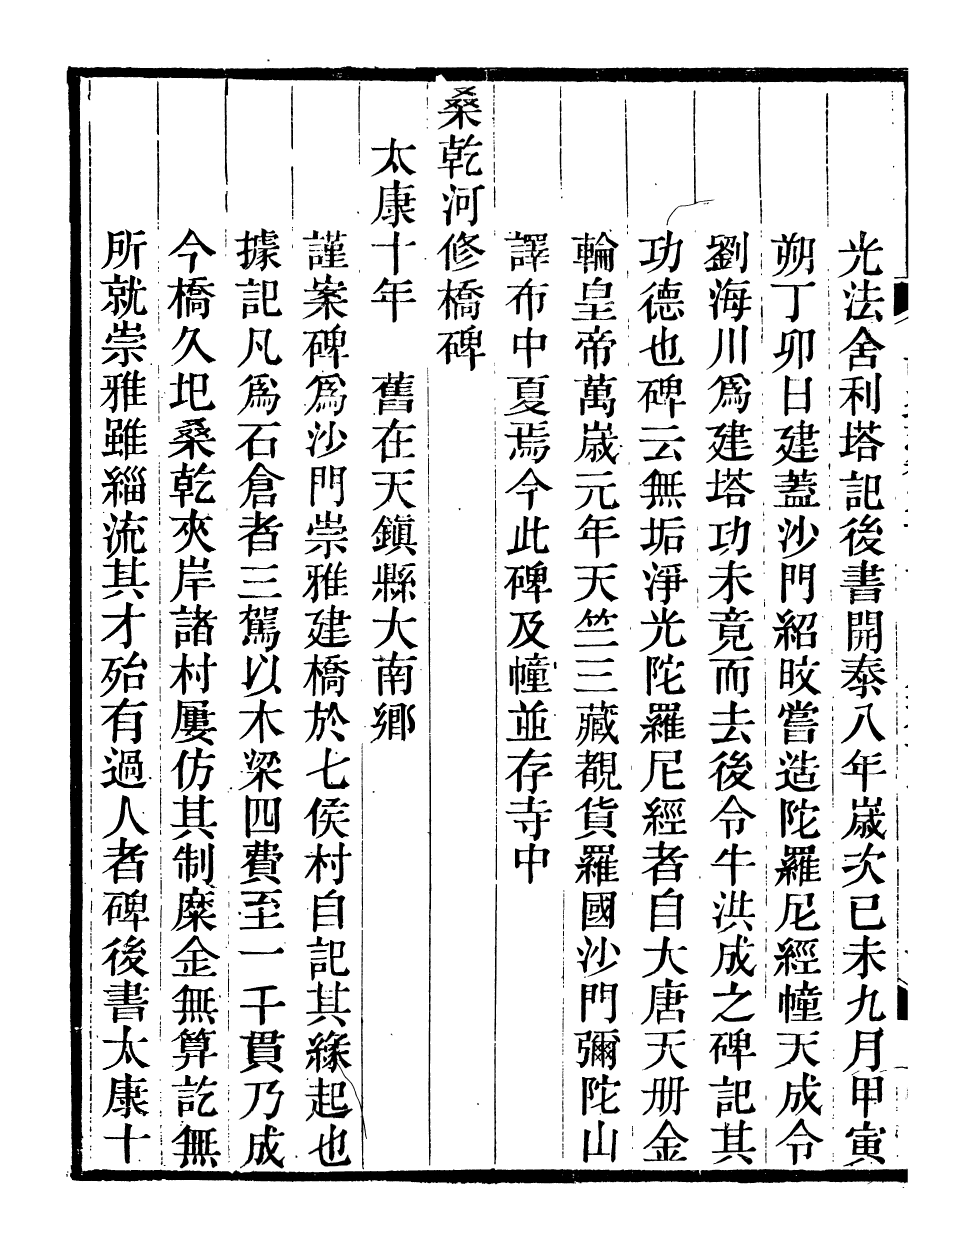 光法舍利塔記後書開泰八年歲次已未九月甲寅
朔丁卯日建蓋沙門紹㫤嘗造陀羅尼經幢天成令
劉海川爲建塔功未竟而去後令牛洪成之碑記其
功德也碑云無垢淨光陀羅尼經者自大唐天册金
輪皇帝萬歲元年天竺三藏覩貨羅國沙門彌陀山
譯布中夏焉今此碑及幢並存寺中
桑乾河修橋碑
太康十年　舊在天鎮縣大南鄉
謹案碑爲沙門崇雅建橋於七侯村自記其緣起也
據記凡爲石倉者三駕以木梁四費至一千貫乃成
今橋久圯桑乾夾岸諸村屢仿其制糜金無算訖無
所就崇雅雖緇流其才殆有過人者碑後書太康十